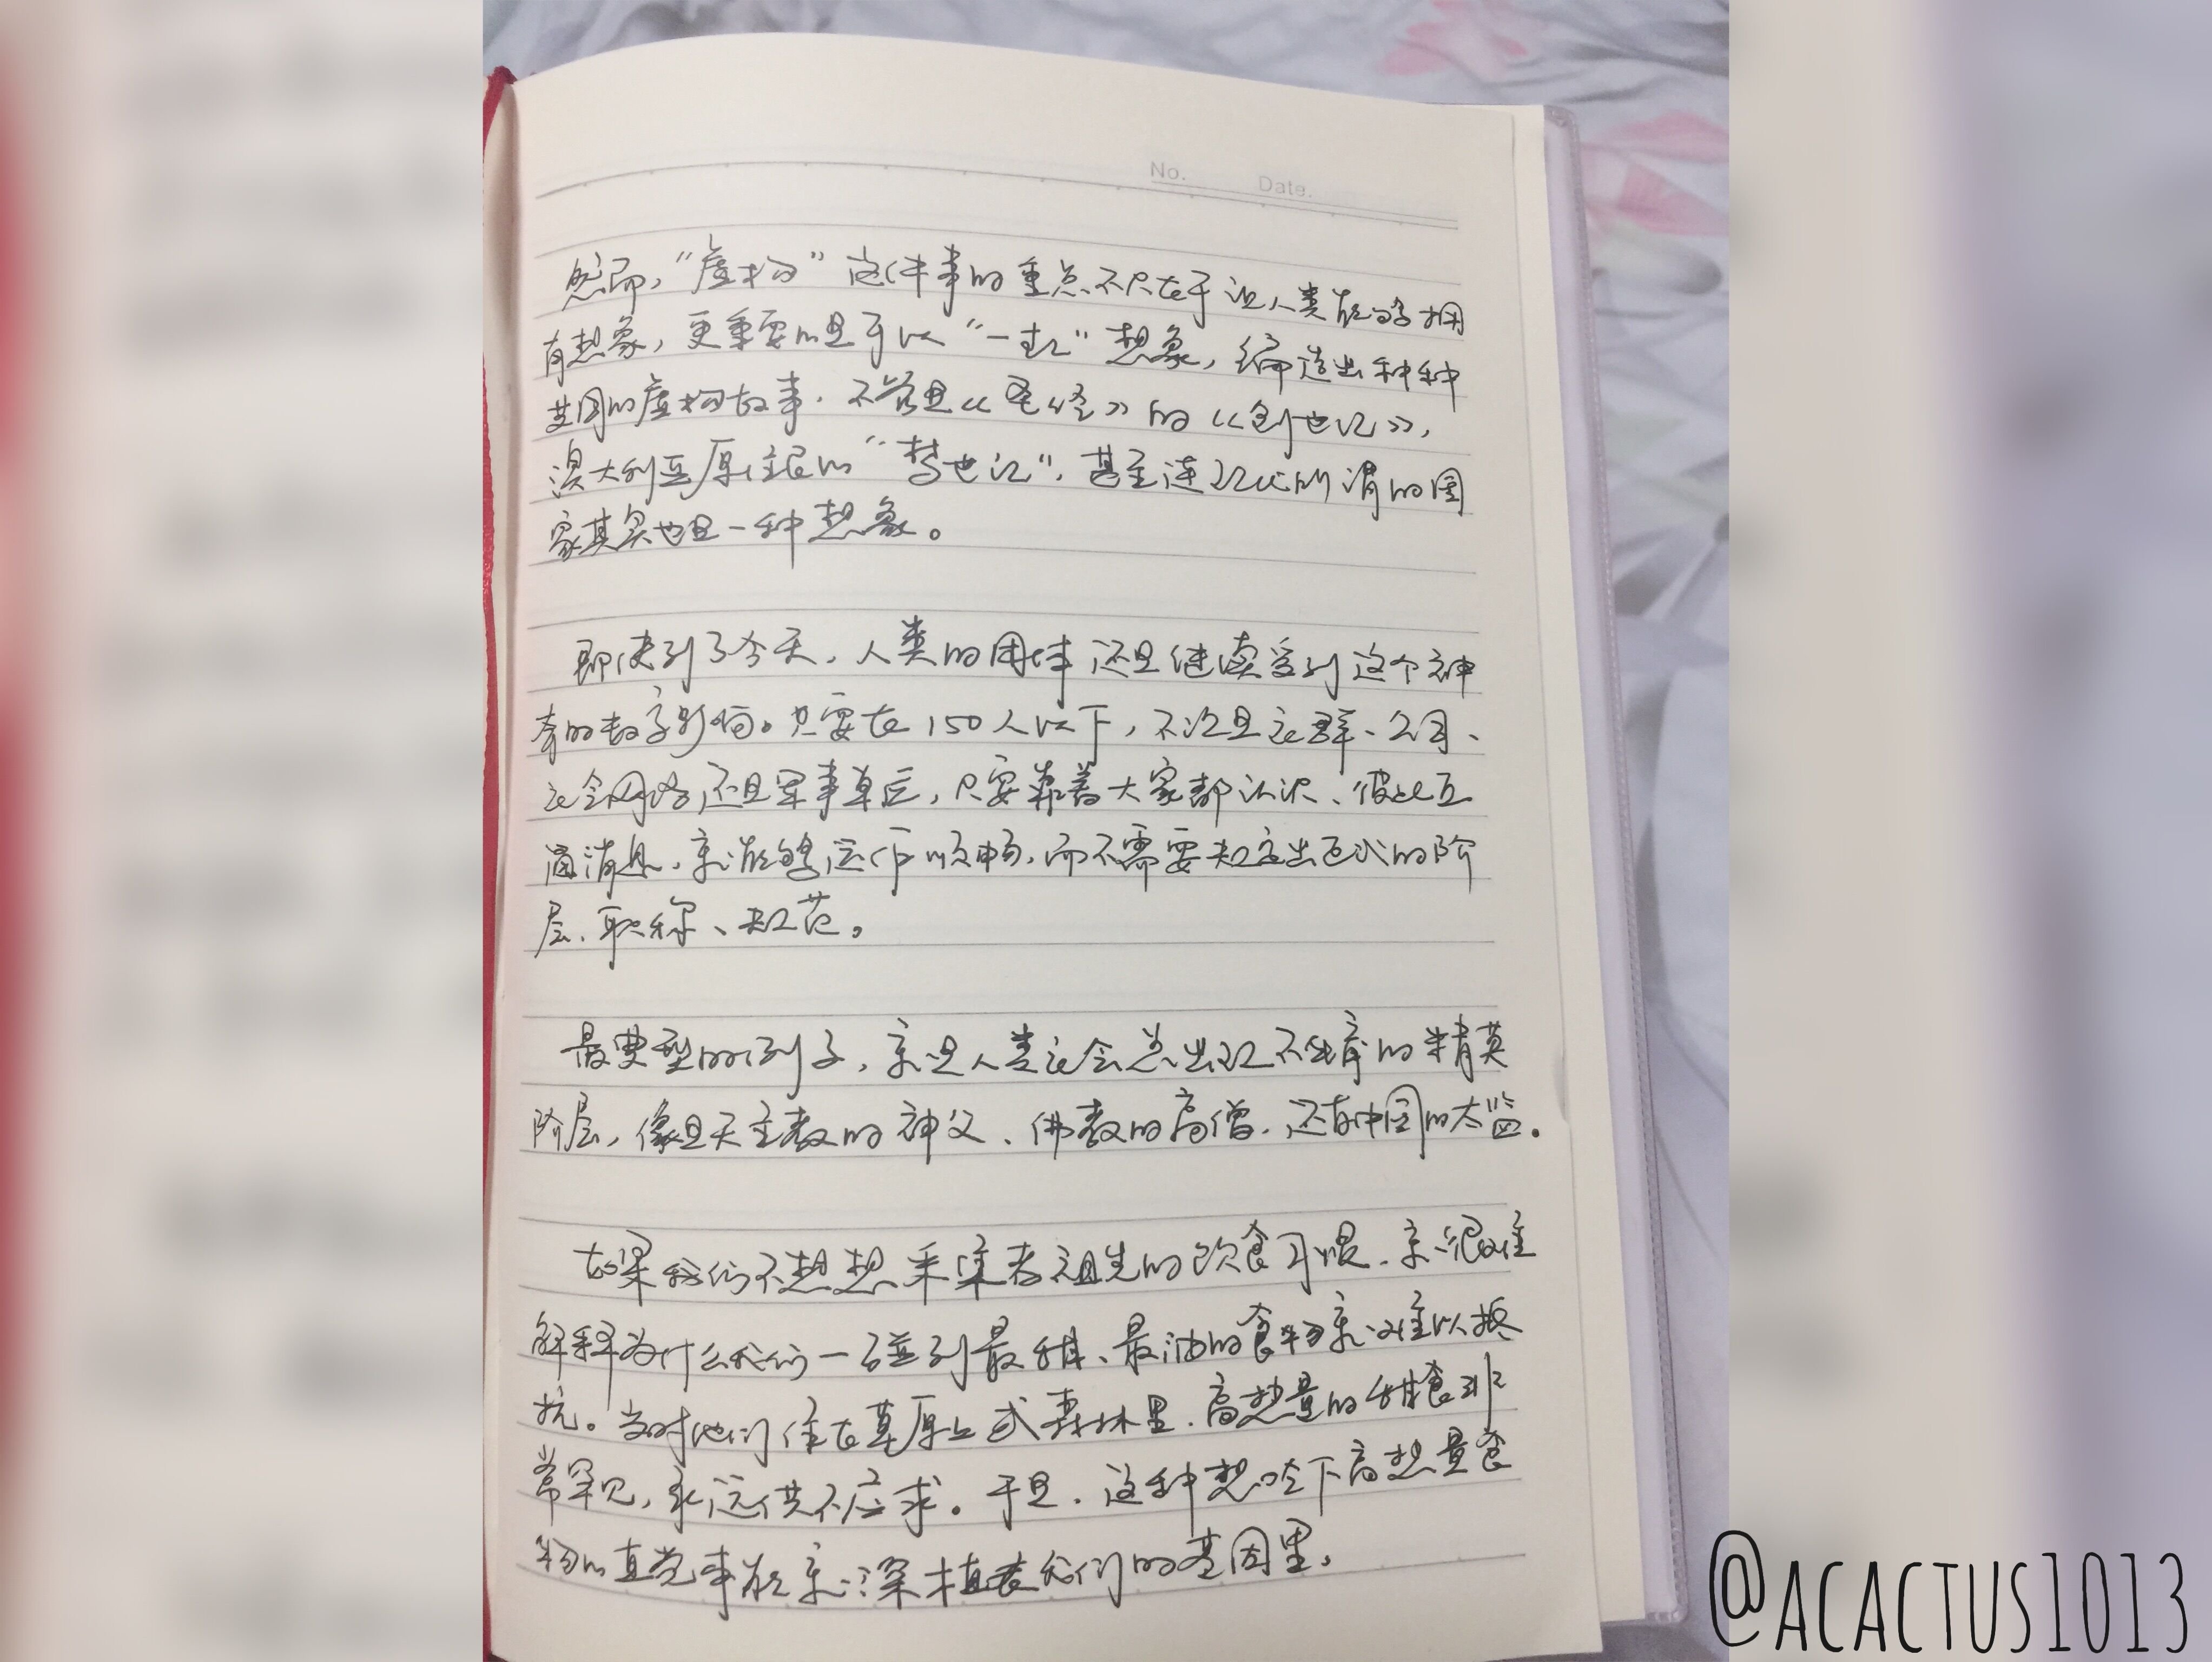 No.    Date.
然而，“虚构”这件事的重点不只在于让人类能够拥
有想象，更重要的是可以“一起”想象，编造出种种
共同的虚构故事。不管是《圣经》的《创世记》，
澳大利亚原住民的“梦世记”，甚至连现代所谓的国
家其实也是一种想象。
即使到了今天，人类的团体还是继续受到这个神
奇的数字影响。只要在150人以下，不论是社群、公司、
社会网络还是军事单位，只要靠着大家都认识、彼此互
通消息，就能够运作顺畅，而不需要规定出正式的阶
层、职称、规范。
最典型的例子，就是人类社会总出现不生育的精英
阶层，像是天主教的神父、佛教的高僧，还有中国的太监。
如果我们不想想采集者祖先的饮食习惯，就很难
解释为什么我们一碰到最甜、最油的食物就难以抵
抗。当时他们住在草原上或森林里，高热量的甜食非
常罕见，永远供不应求。于是，这种想吃下高热量食
物的直觉本能就深植在我们的基因里。
@ACACTUS1013